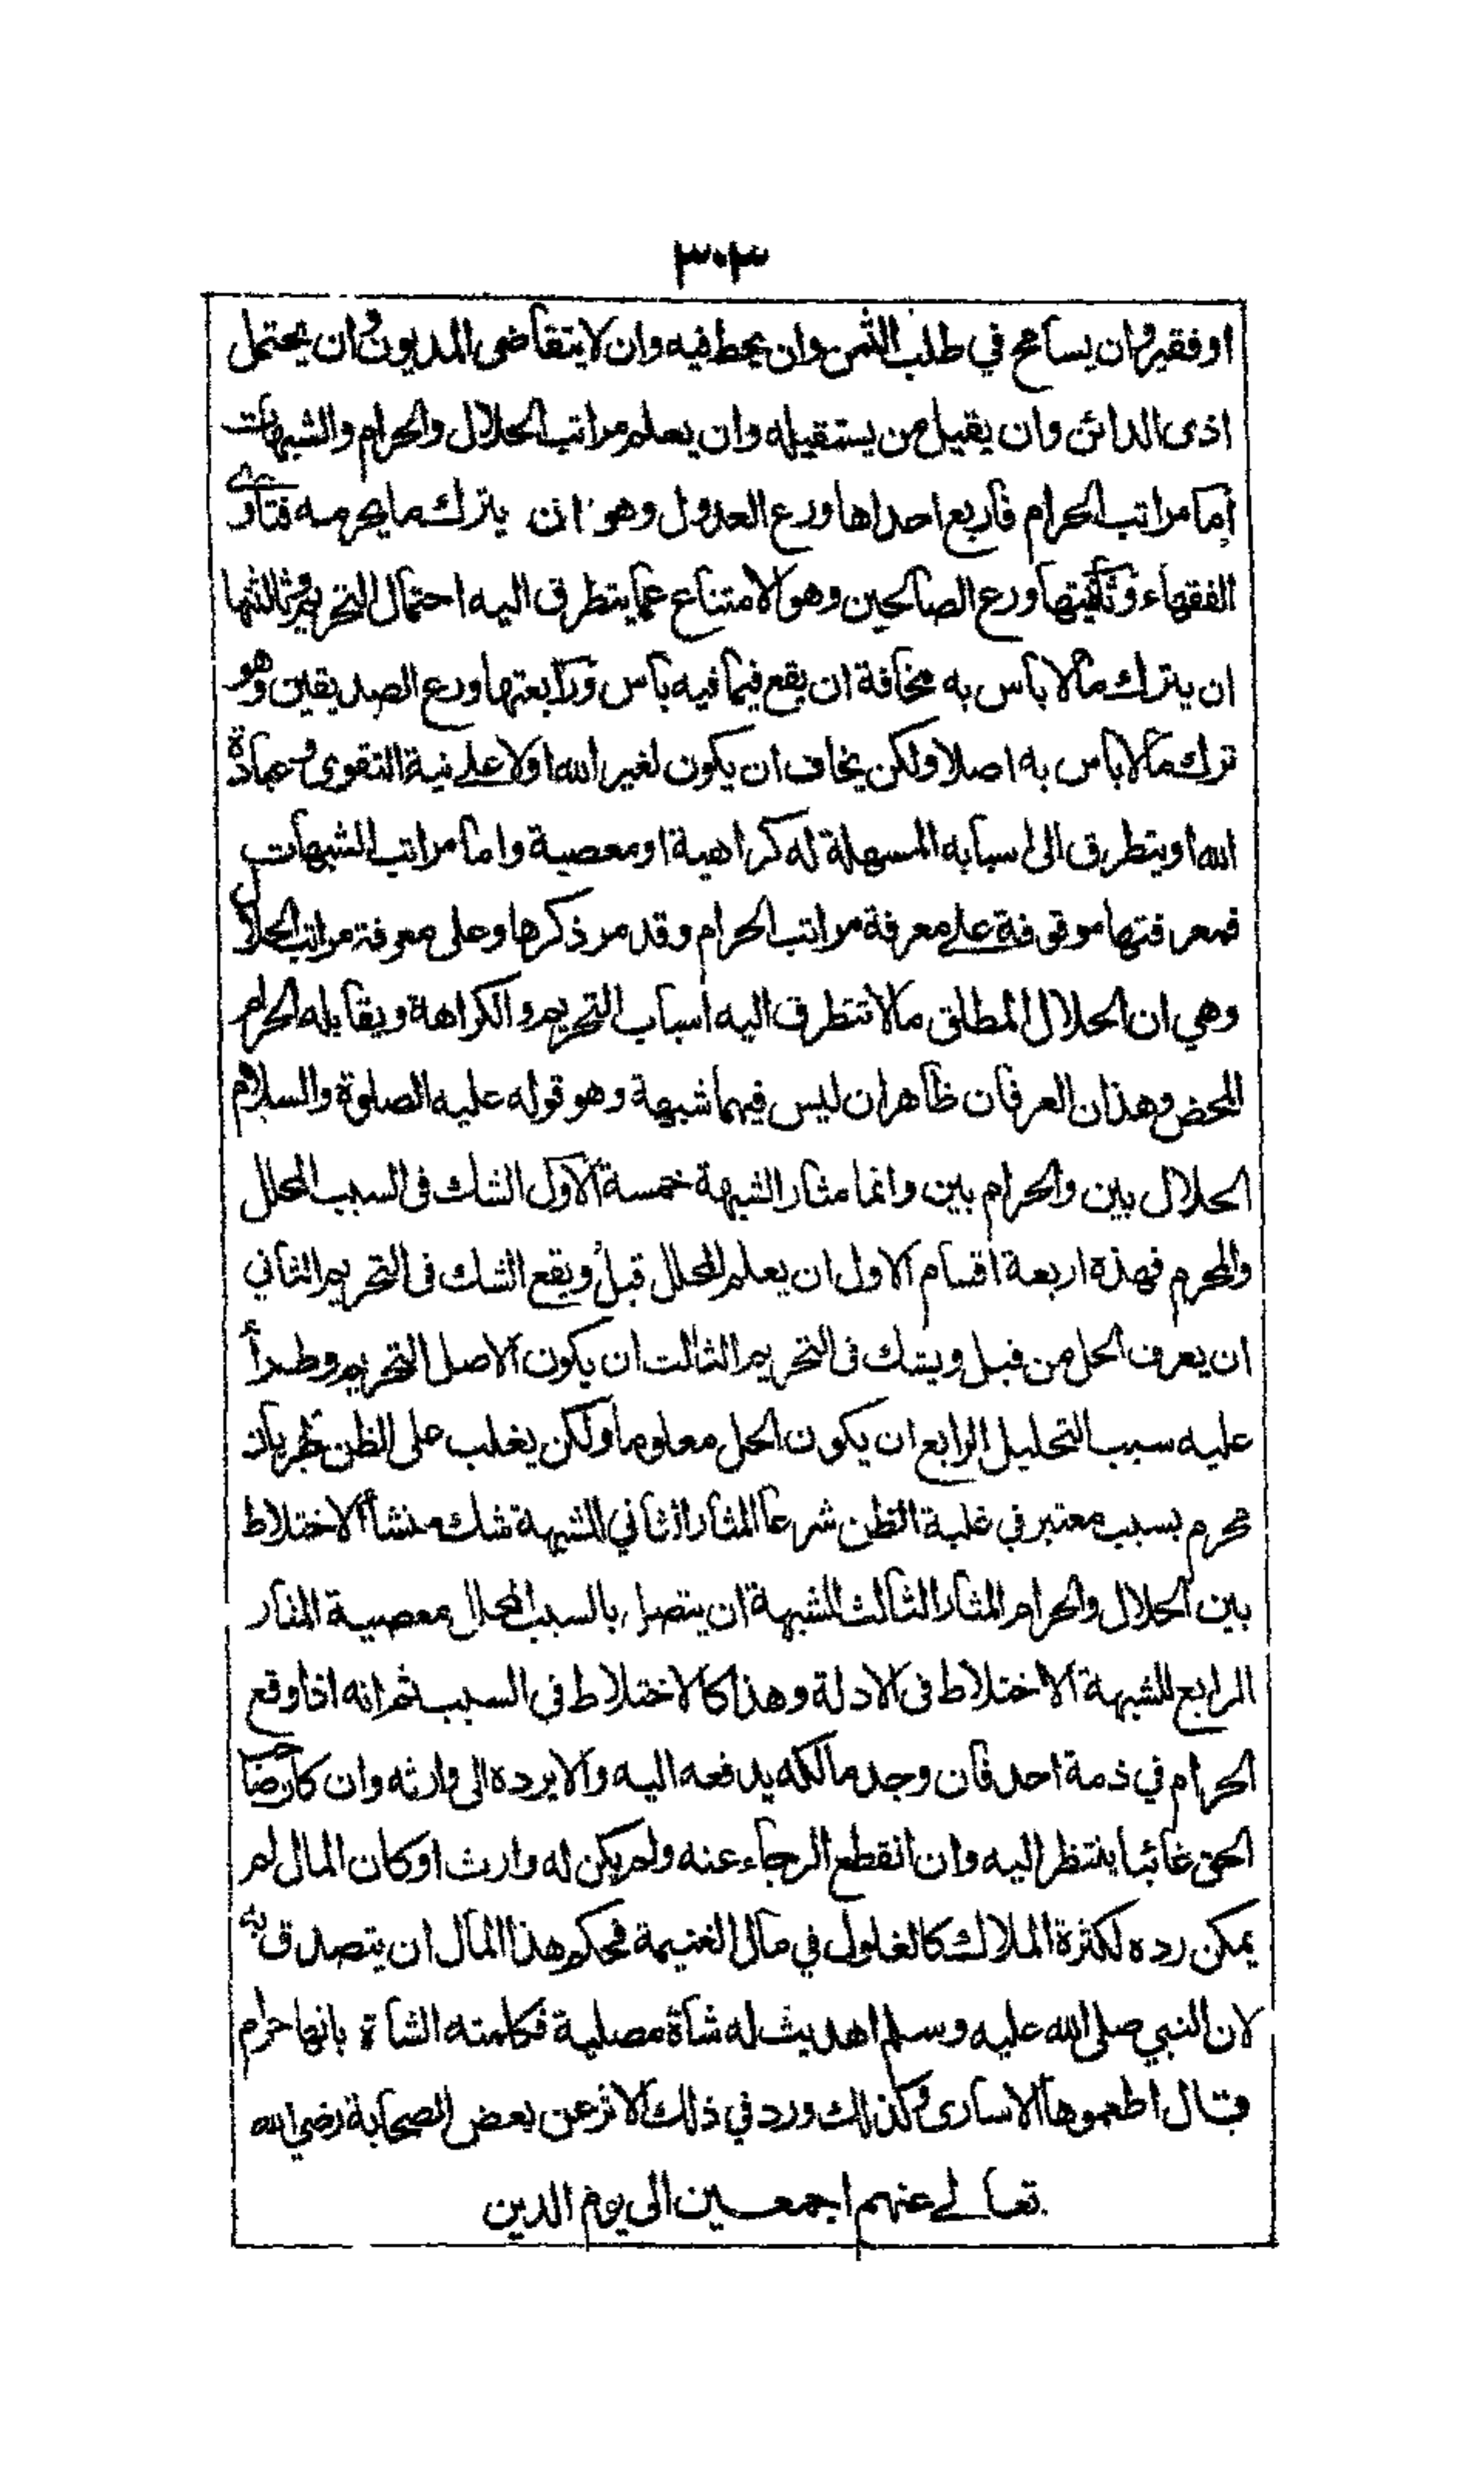 ٣٠٣
او فقير وان يسامح في طلب الثمن وان يحط فيه وان لا يتقاضى المديون وان يحتمل
اذى الدائن وان يقيل من يستقيله وان يعلم مراتب الحلال والحرام والشبهات
اما مراتب الحرام فاربع احداها ورع العدول وهو ان يترك ما يحرمه فتاوى
الفقهاء وثانيتها ورع الصالحين وهو الامتناع عما يتطرق اليه احتمال التحريم وثالثها
ان يترك مالا باس به مخافة ان يقع فيما فيه باس ورابعتها ورع الصديقين وهو
ترك مالا باس به اصلا ولكن يخاف ان يكون لغير الله او لا على نية التقوى وعبادة
الله او يتطرق الى اسبابه المسهلة له كراهية او معصية واما مراتب الشبهات
فمعرفتها موقوفة على معرفة مراتب الحرام وقد مر ذكرها وعلى معرفة مراتب الحلال
وهي ان الحلال المطلق مالا تتطرق اليه اسباب التحريم والكراهة ويقابله الحرام
المحض وهذان العرفان ظاهران ليس فيهما شبهة وهو قوله عليه الصلوة والسلام
الحلال بين والحرام بين وانما مثار الشبهة خمسة الاول الشك فى السبب المحلل
والمحرم فهذه اربعة اقسام الاول ان يعلم المحلل قبل ويقع الشك فى التحريم الثاني
ان يعرف الحل من قبل ويشك فى التحريم الثالث ان يكون الاصل التحريم وطرأ
عليه سبب التحليل الرابع ان يكون الحل معلوما ولكن يغلب على الظن طريان
محرم بسبب معتبر في غلبة الظن شرعا المثار الثاني للشبهة شك منشأ الاختلاط
بين الحلال والحرام المثار الثالث للشبهة ان يتصل بالسبب المحلل معصية المثار
الرابع للشبهة الاختلاط فى الادلة وهذا كالاختلاط في السبب ثم انه اذا وقع
الحرام في ذمة احد فان وجد مالكه يدفعه اليه والا يرده الى وارثه وان كان صاحب
الحق غائبا ينتظر اليه وان انقطع الرجاء عنه ولم يكن له وارث او كان المال لم
يمكن رده لكثرة الملاك كالغلول في مال الغنيمة فحكم هذا المال ان يتصدق به
لان النبي صلى الله عليه وسلم اهديت له شاة مصلية فكلمته الشاة بانها حرام
فقال اطعموها الاسارى وكذلك ورد في ذلك الاثر عن بعض الصحابة رضي الله
تعالى عنهم اجمعين الى يوم الدين